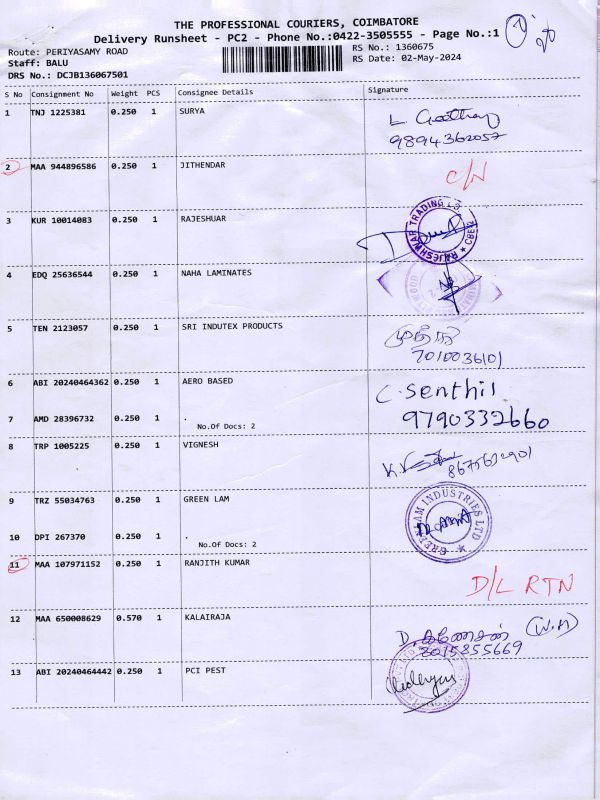 THE PROFESSIONAL COURIERS, COIMBATORE
Delivery Runsheet - PC2 - Phone No.:0422-3505555 - Page No.:1
Route: PERIYASAMY ROAD
RS No.: 1360675
Staff: BALU
RS Date: 02-May-2024
DRS No.: DCJB136067501
S No Consignment No Weight PCS Consignee Details Signature
1 TNJ 1225381 0.250 1 SURYA
9894362057
2 MAA 944896586 0.250 1 JITHENDAR
C/N
3 KUR 10014083 0.250 1 RAJESHUAR
RAJESHWAR TRADING CBE
4 EDQ 25636544 0.250 1 NAHA LAMINATES
5 TEN 2123057 0.250 1 SRI INDUTEX PRODUCTS
7010036101
6 ABI 20240464362 0.250 1 AERO BASED
C. Senthil
7 AMD 28396732 0.250 1 .
9790332660
No.Of Docs: 2
8 TRP 1005225 0.250 1 VIGNESH
9 TRZ 55034763 0.250 1 GREEN LAM
GREEN LAM INDUSTRIES LTD
10 DPI 267370 0.250 1 .
No.Of Docs: 2
11 MAA 107971152 0.250 1 RANJITH KUMAR
D/L RTN
12 MAA 650008629 0.570 1 KALAIRAJA
D. கணேசன் (W.M)
8015855669
13 ABI 20240464442 0.250 1 PCI PEST